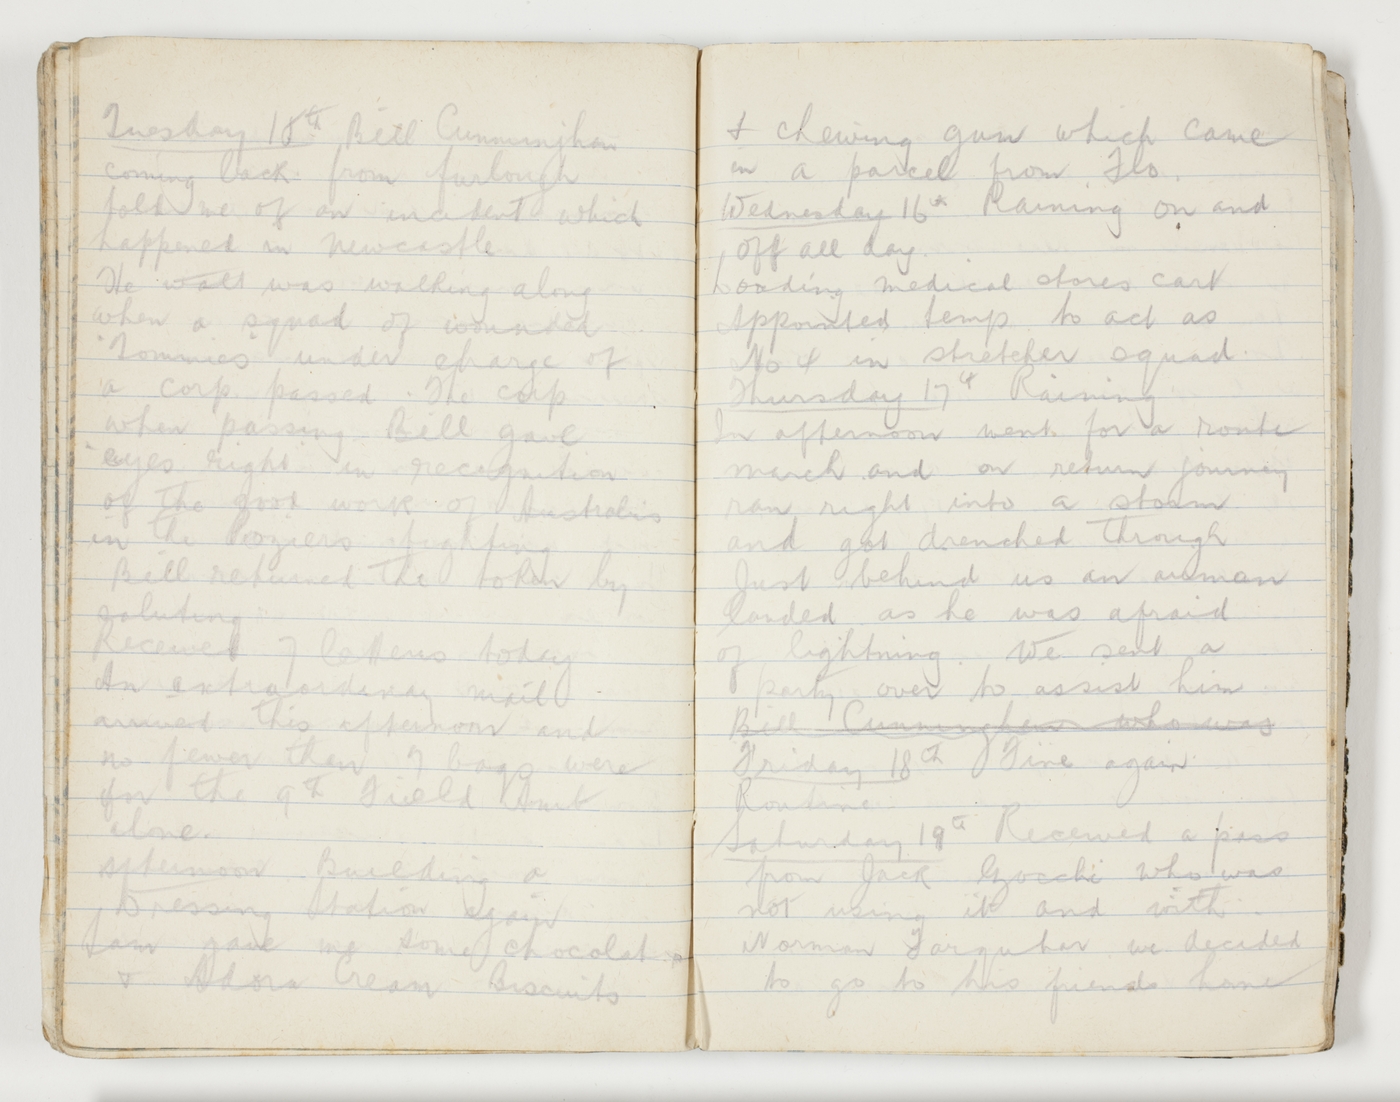 Tuesday 15th Bill Cunningham
coming back from furlough
told me of an incident which
happened in Newcastle
He walk was walking along
when a squad of wounded
"Tommies" under charge of
a corp passed. The corp
when passing Bill gave
"eyes right" in recognition
of the good work of Australis
in the Pozieres fighting
Bill returned the token by
saluting
Received 7 letters today
An extraordinary mail
arrived this afternoon and
no fewer than 7 bags were
for the 9th Field Amb
alone.
afternoon Building a
Dressing Station again
Sam gave me some chocolate
& Adora Cream Biscuits
& chewing gum which came
in a parcel from Flo.
Wednesday 16th Raining on and
off all day.
Loading medical stores cart
Appointed temp to act as
No 4 in stretcher squad.
Thursday 17th Raining
In afternoon went for a route
march and on return journey
ran right into a storm
and got drenched through
Just behind us an airman
landed as he was afraid
of lightning. We sent a
party over to assist him
Bill Cunningham who was
Friday 18th Fine again
Routine
Saturday 19th Received a pass
from Jack who was
not using it and with
Norman Farquhar we decided
to go to his friends home